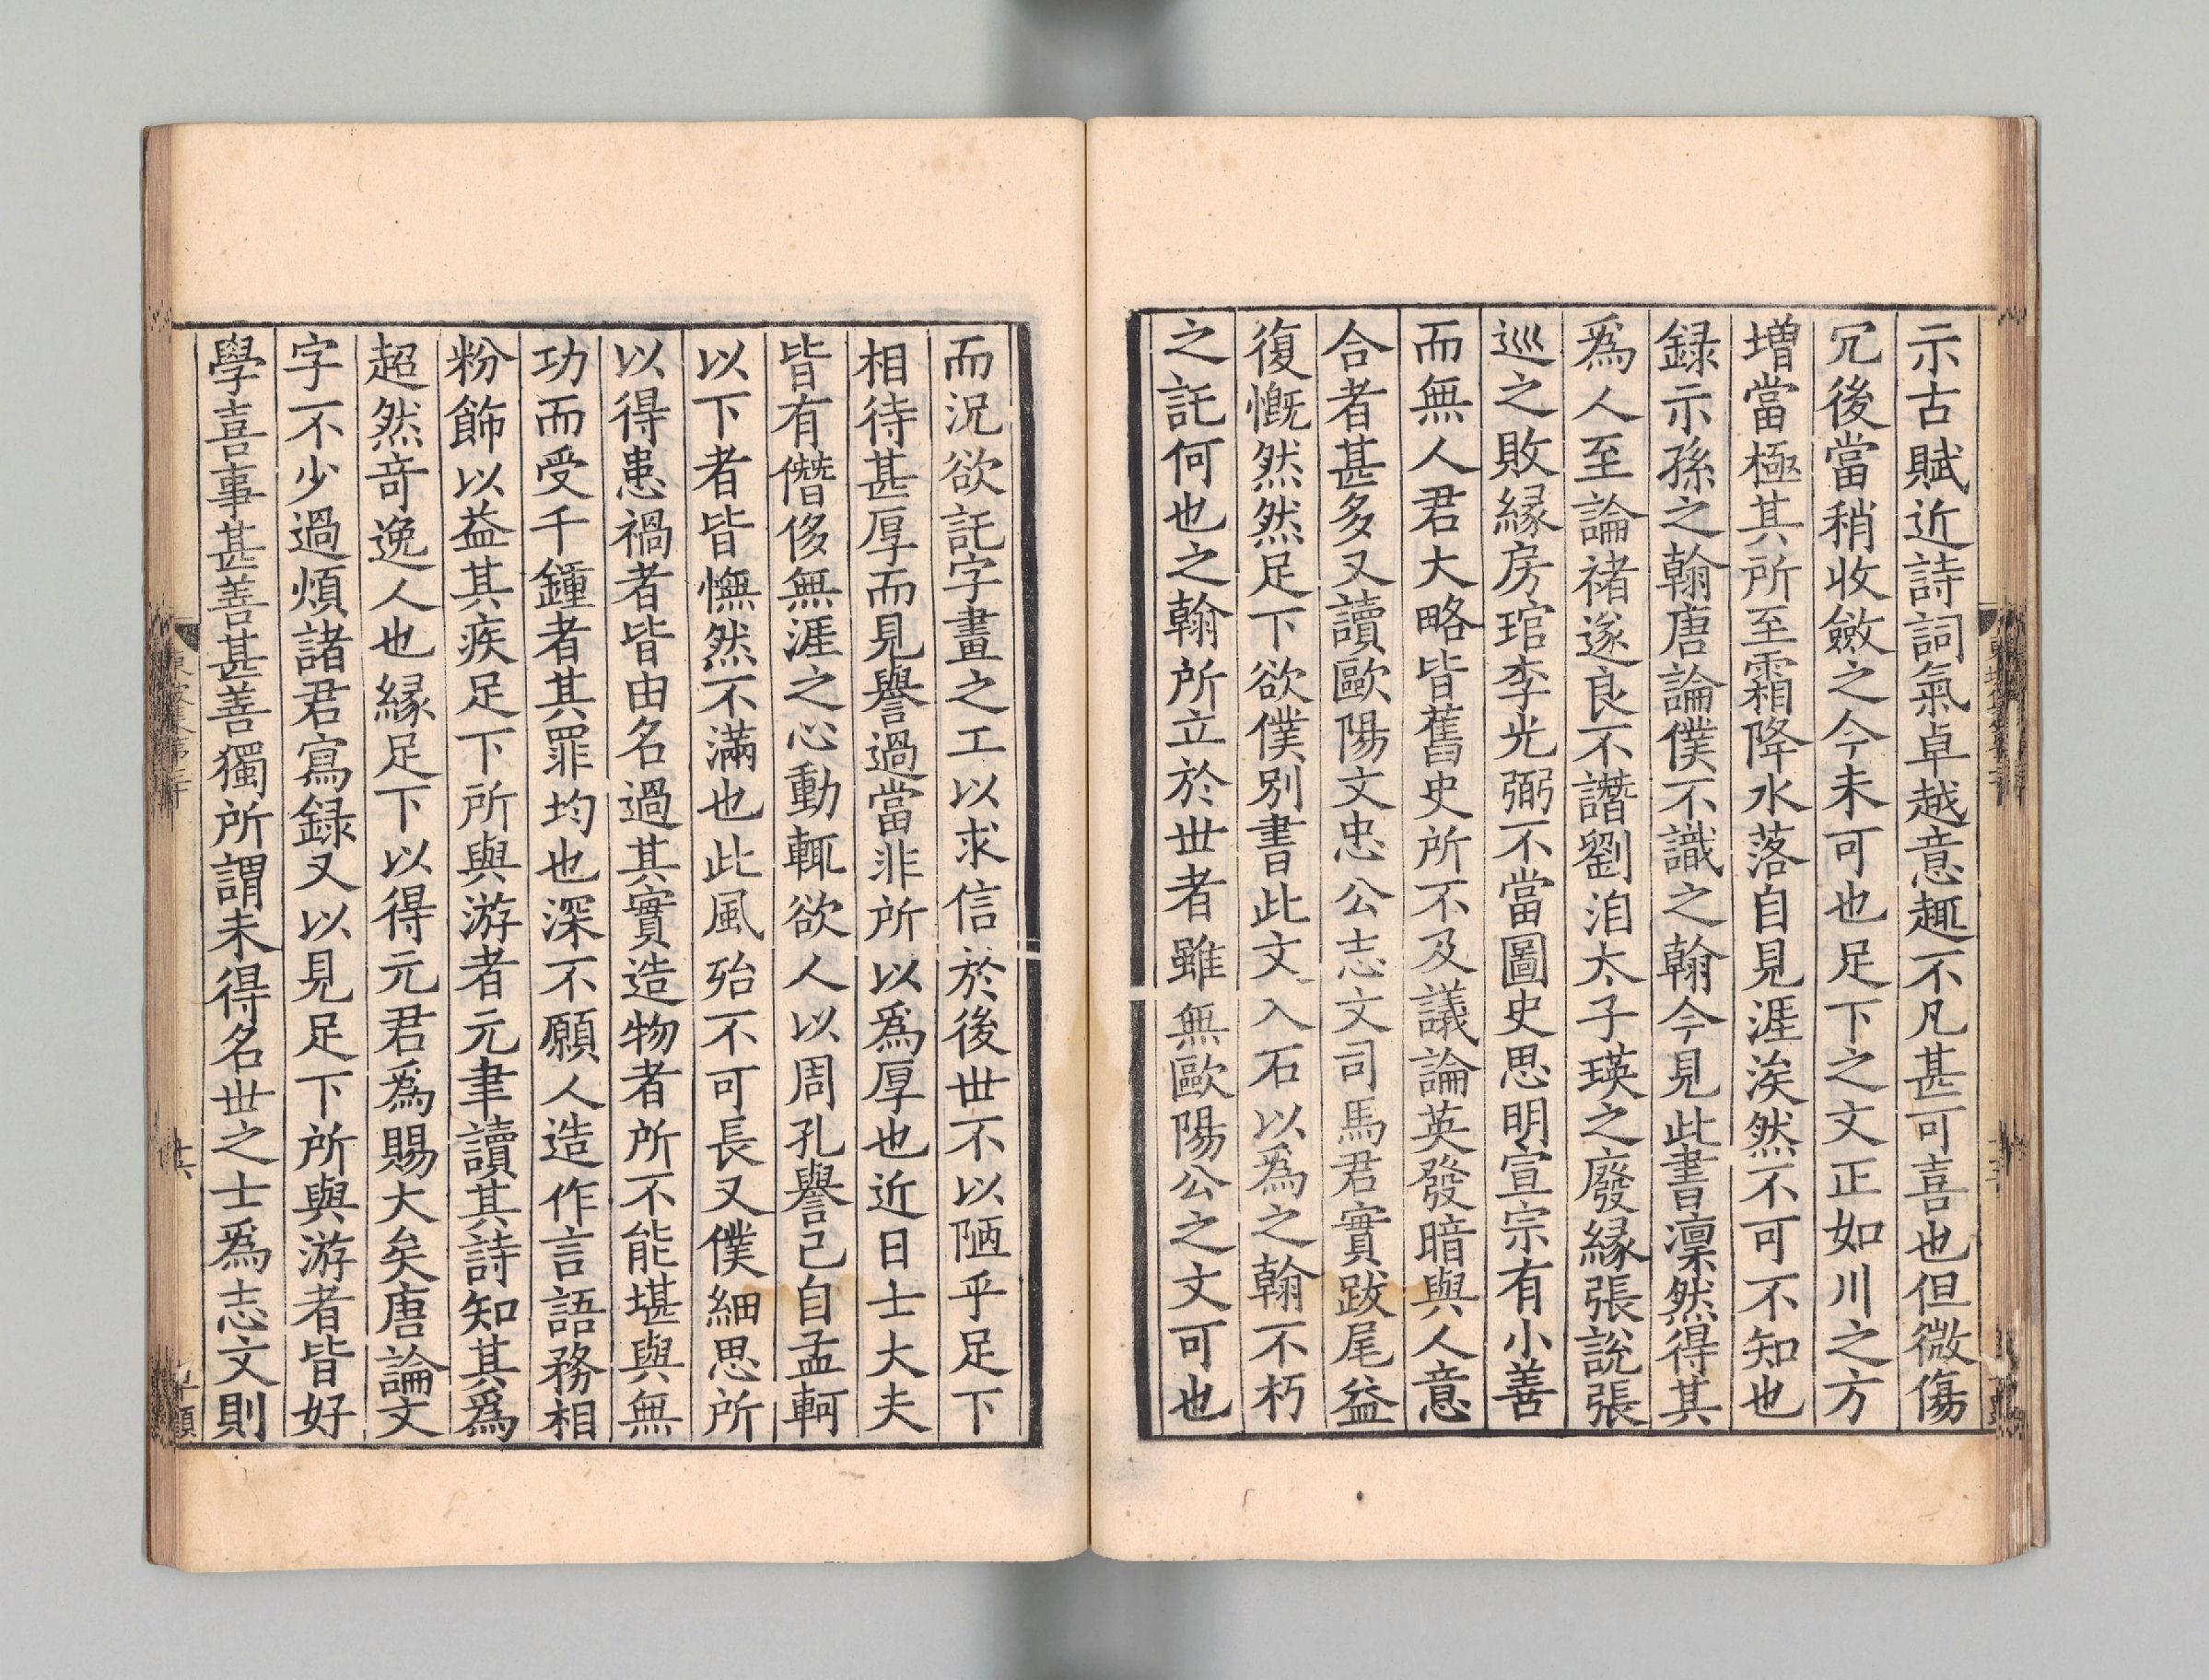 示古賦近詩詞氣卓越意趣不凡甚可喜也但微傷
冗後當稍收斂之今未可也足下之文正如川之方
增當極其所至霜降水落自見涯涘然不可不知也
録示孫之翰唐論僕不識之翰今見此書凜然得其
爲人至論褚遂良不譖劉洎太子瑛之廢縁張說張
巡之敗縁房琯李光弼不當圖史思明宣宗有小善
而無人君大略皆舊史所不及議論英發暗與人意
合者甚多又讀歐陽文忠公志文司馬君實跋尾益
復慨然然足下欲僕別書此文入石以為之翰不朽
之託何也之翰所立於世者雖無歐陽公之文可也
而況欲託字畫之工以求信於後世不以陋乎足下
相待甚厚而見譽過當非所以爲厚也近日士大夫
皆有僭侈無涯之心動輒欲人以周孔譽己自孟軻
以下者皆憮然不滿也此風殆不可長又僕細思所
以得患禍者皆由名過其實造物者所不能堪與無
功而受千鍾者其罪均也深不願人造作言語務相
粉飾以益其疾足下所與游者元聿讀其詩知其爲
超然竒逸人也縁足下以得元君爲賜大矣唐論文
字不少過煩諸君寫録又以見足下所與游者皆好
學喜事甚善甚善獨所謂未得名世之士爲志文則